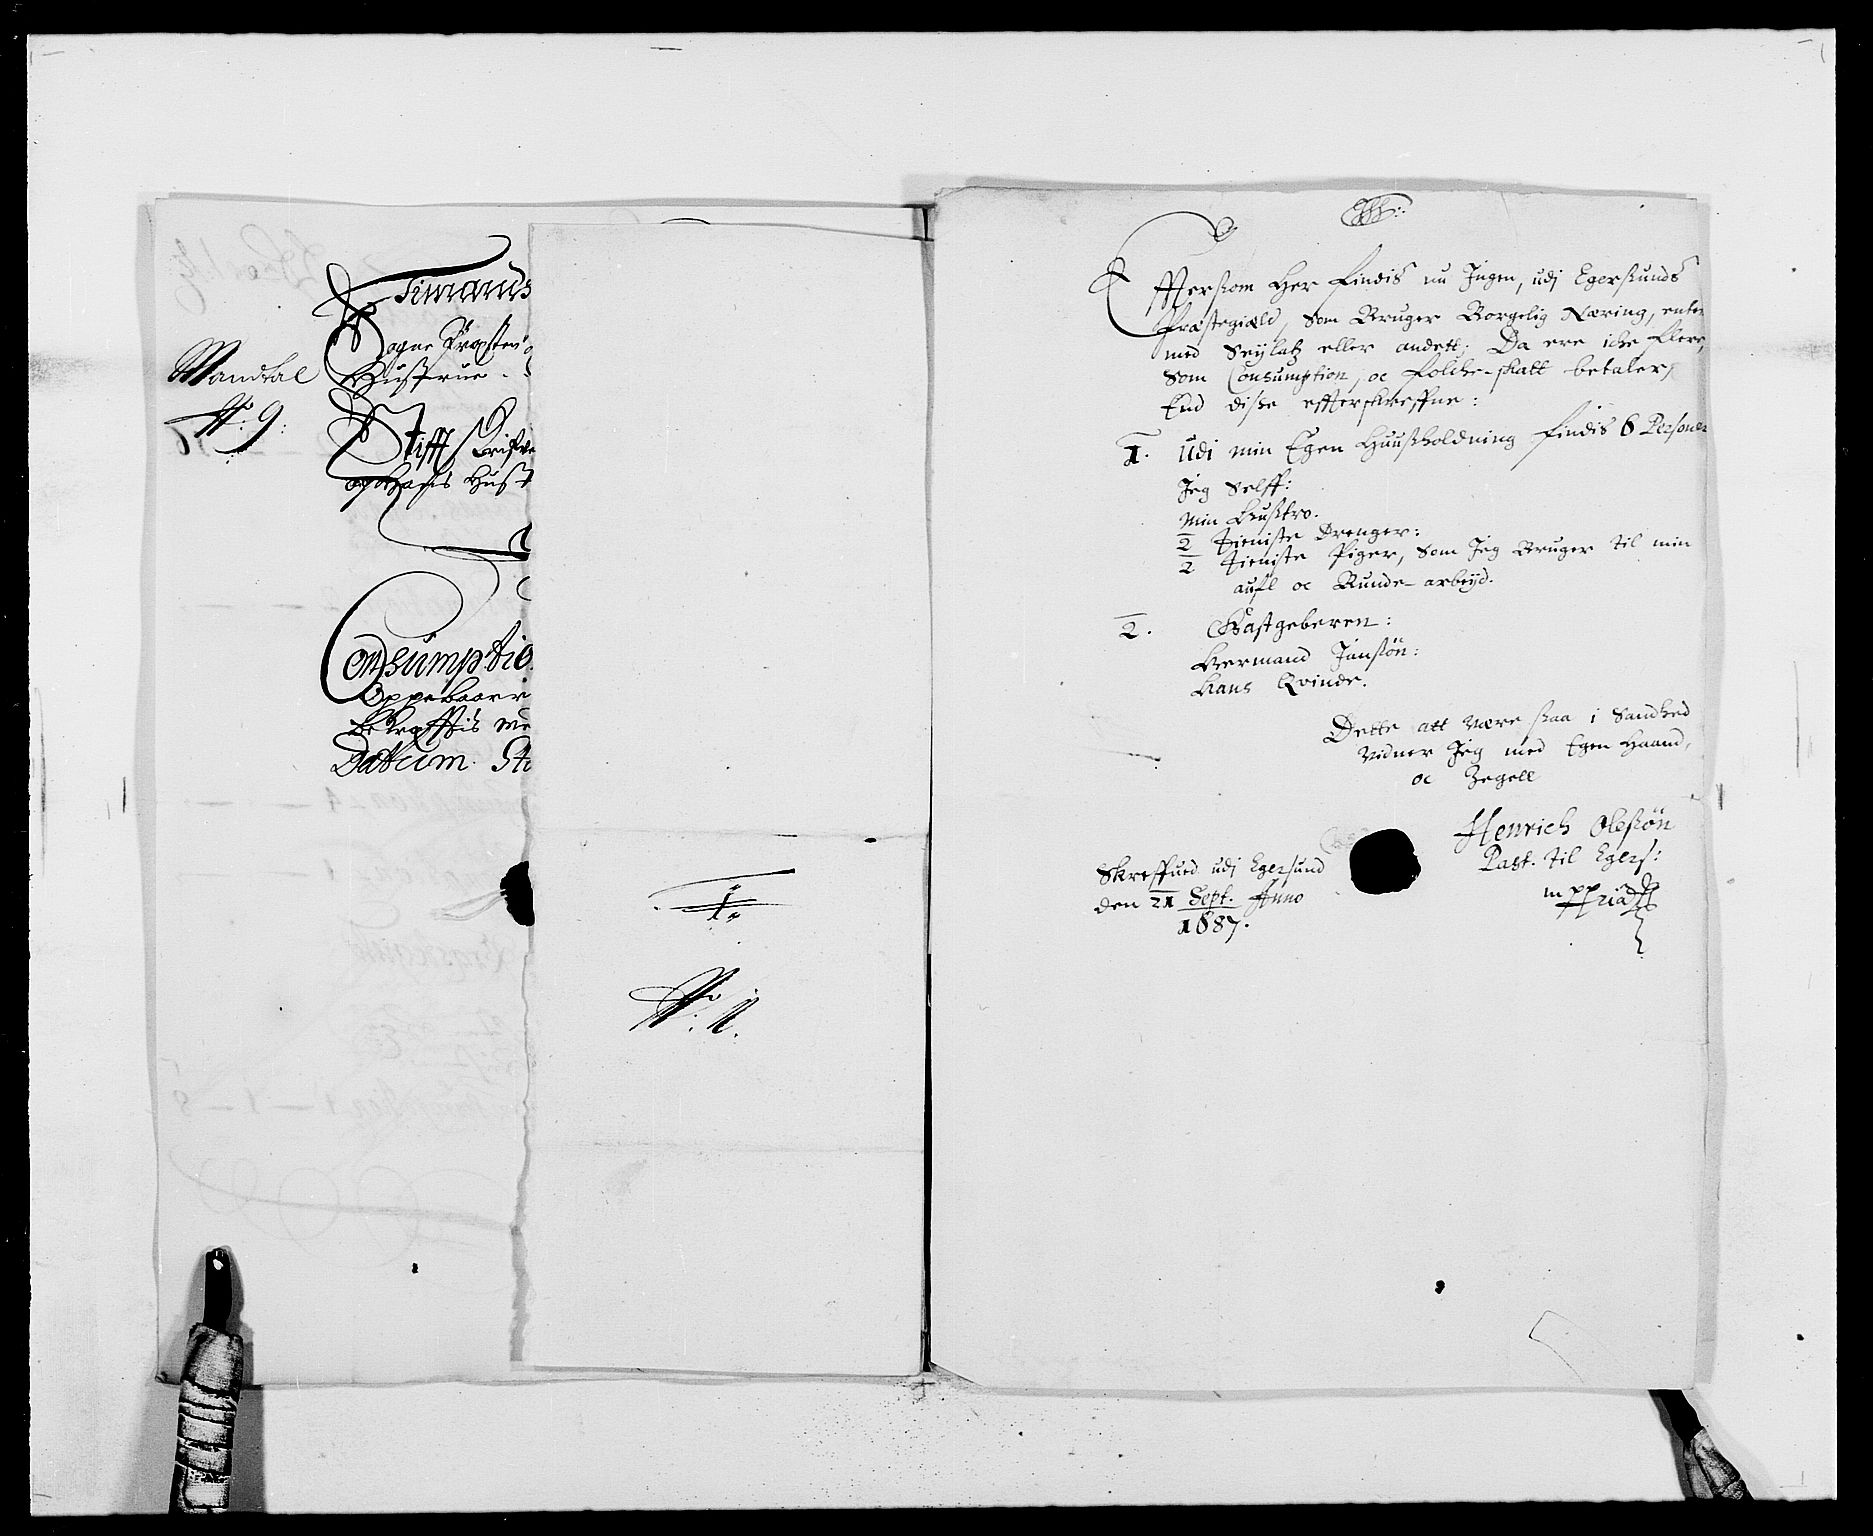 Mandtal
No: 9:
Timanus
Sogne Præsten
Hustrue
Stifft Skrifve
og Hans Hust
Consumptio
Oppebaarr
bekrefftis
Datum St
1.
No: 1.
Effterssom Her Findis nu Ingen, udj Egerssunds
Præstegiæld, som Bruger Borgelig Næring, enten
med Seylatz eller andett; Da ere iche flere,
som Consumption, oc Folche-skatt betaler,
End disse effterskreffne:
1. Udi min Egen Huussholdning findis 6 Personer
Jeg Selff:
Min Husstro.
2 Tieniste Drenger:
2 Tieniste Piger, som Jeg Bruger til min
aufl oc Bunde-arbeyd.
2. Gastgeberen:
Hermand Jansøn:
Hans Qvinde.
Dette att være ssaa i Sandhed
Vidner Jeg med Egen Haand,
oc Zegell
Henrich Olessøn
Past. til Egers:
mppria
Skreffued udj Egersund
den 21 Sept. Anno
1687.